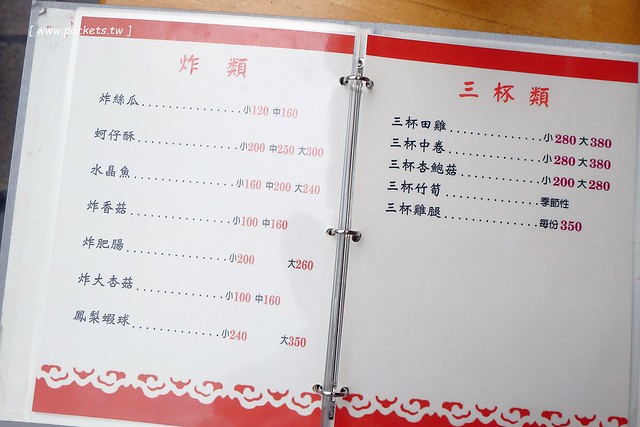 [ www.pockets.tw ]
炸 類
炸絲瓜................小120 中160
蚵仔酥................小200 中250 大300
水晶魚................小160 中200 大240
炸香菇................小100 中160
炸肥腸................小200 大260
炸大杏菇................小100 中160
鳳梨蝦球................小240 大350
三 杯 類
三杯田雞................小280 大380
三杯中卷................小280 大380
三杯杏鮑菇................小200 大280
三杯竹筍................季節性
三杯雞腿................每份350